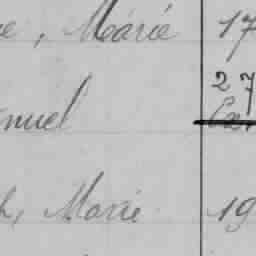 e, Marie 17
27
nuel
h, Marie 19